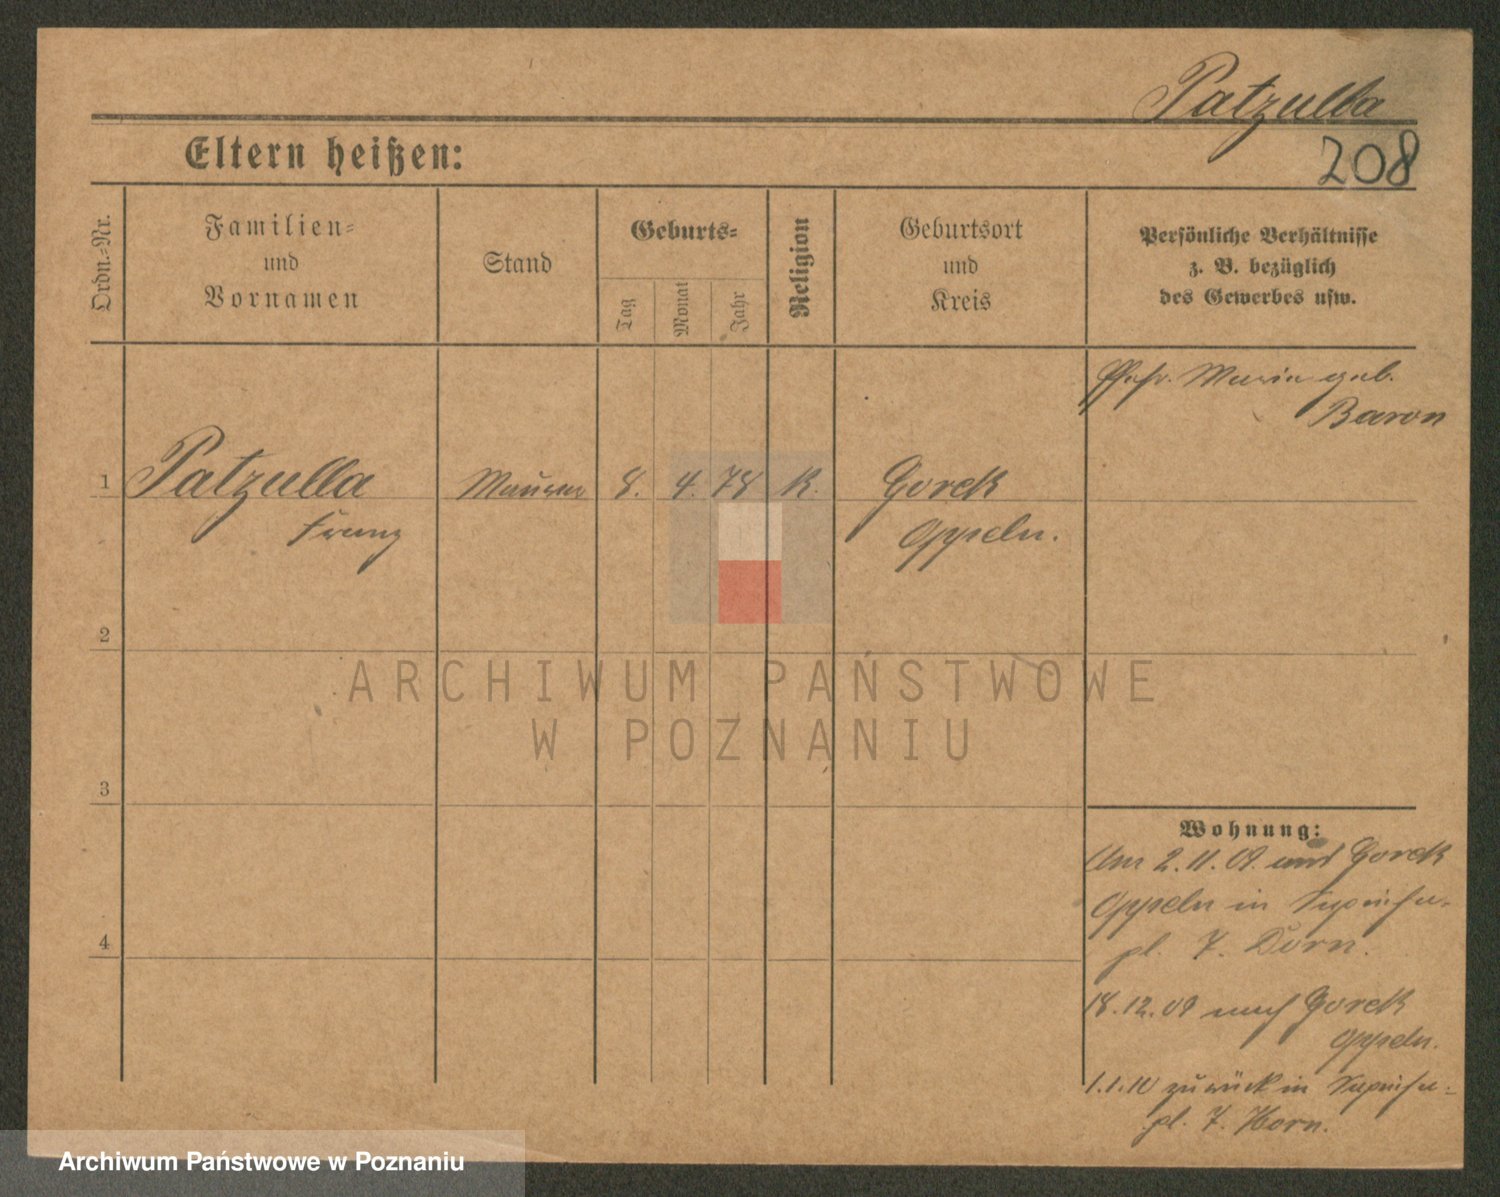 Patzulla
208
Eltern heißen:
Ordn.-Nr.
Familien-
und
Vornamen
Stand
Geburts-
Tag
Monat
Jahr
Religion
Geburtsort
und
Kreis
Persönliche Verhältnisse
z. B. bezüglich
des Gewerbes usw.
Ehefr. Maria geb.
Baron
1
Patzulla
Franz
Maurer
8.
4.
78
K.
Gorek
Oppeln.
2
3
4
Wohnung:
Am 2.11.09. Gorek
Oppeln in
pl. 7.
18.12.09 nach Gorek
Oppeln.
1.1.10 zurück in
pl. 7. Horn.
ARCHIWUM PAŃSTWOWE
W POZNANIU
Archiwum Państwowe w Poznaniu